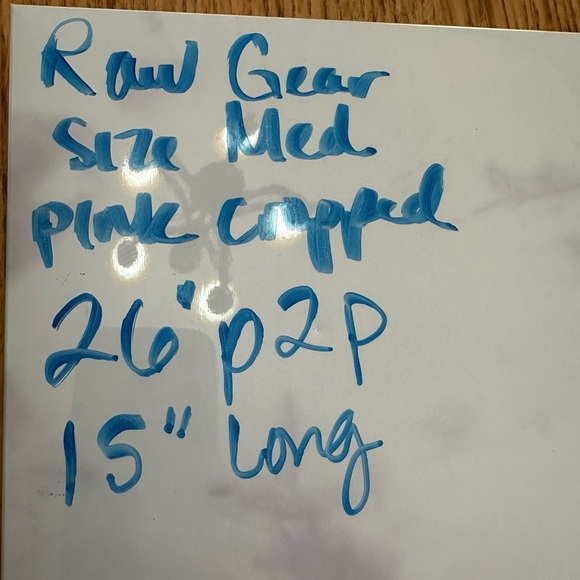 Raw Gear
Size Med
pink cropped
26" p2p
15" Long